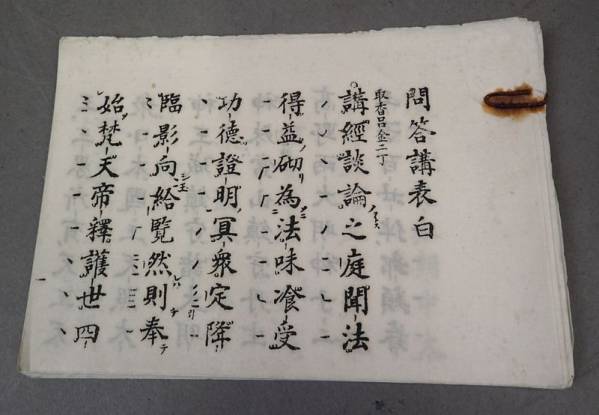 問答講表白
取香呂金二丁
講經談論之庭聞法
得益砌為法味飡受
功德證明冥衆定降
臨影向給覽然則奉
始梵天帝釋護世四